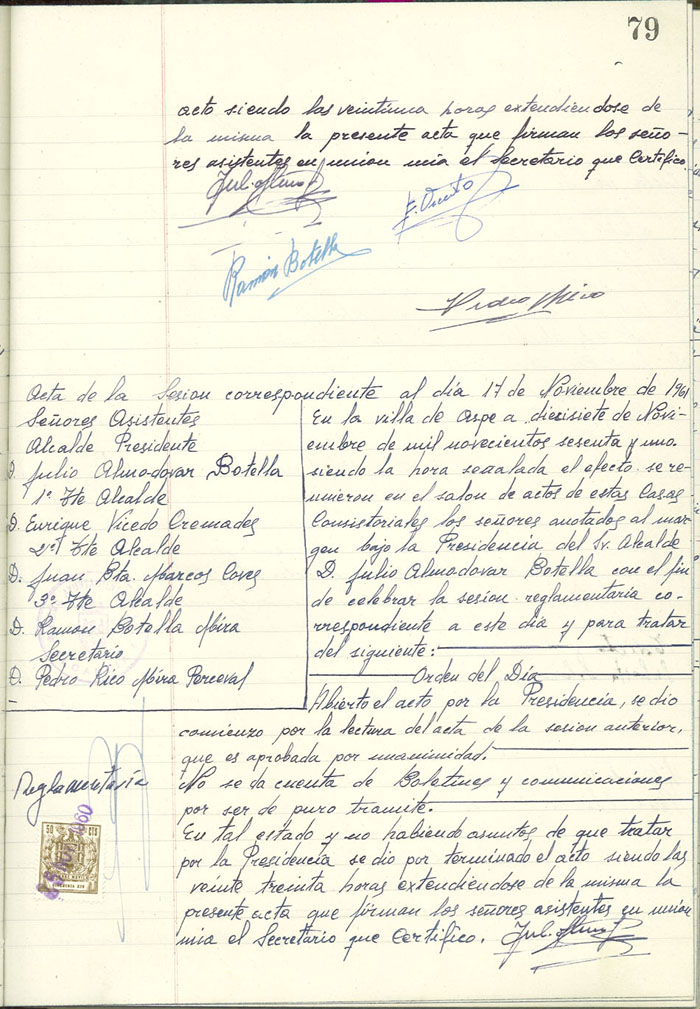 79
acto siendo las veintiuna horas extendiendose de
la misma la presente acta que firman los seño-
res asistentes en union mia el Secretario que Certifico.
Ramón Botella
Acta de la Sesion correspondiente al día 17 de Noviembre de 1961
Señores Asistentes
Alcalde Presidente
D. Julio Almodovar Botella
1º Tte Alcalde
D. Enrique Vicedo Cremades
2º Tte Alcalde
D. Juan Bta. Marcos Caves
3º Tte Alcalde
D. Ramon Botella Mira
Secretario
D. Pedro Rico Mira Perceval
En la villa de Aspe a diecisiete de Novi-
embre de mil novecientos sesenta y uno.
siendo la hora sealada el efecto se re-
unieron en el salon de actos de estas Casas
Consistoriales los señores anotados al mar-
gen bajo la Presidencia del Sr. Alcalde
D. Julio Almodovar Botella con el fin
de celebrar la sesion reglamentaria co-
rrespondiente a este día y para tratar
del siguiente:
Orden del Día
Abierto el acto por la Presidencia, se dio
comienzo por la lectura del acta de la sesion anterior,
que es aprobada por unanimidad.
Reglamentaria
No se da cuenta de Boletines y comunicaciones
por ser de puro tramite.
En tal estado y no habiendo asuntos de que tratar
por la Presidencia se dio por terminado el acto siendo las
veinte treinta horas extendiendose de la misma la
presente acta que firman los señores asistentes en union
mia el Secretario que Certifico.
50 CTS
1960